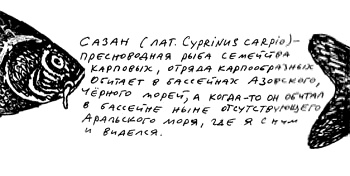 Сазан (лат. Cyprinus carpio)–
пресноводная рыба семейства
карповых, отряда карпообразных
Обитает в бассейнах Азовского,
Чёрного морей, а когда-то он обитал
в бассейне ныне отсутствующего
Аральского моря, где я с ним
и виделся.